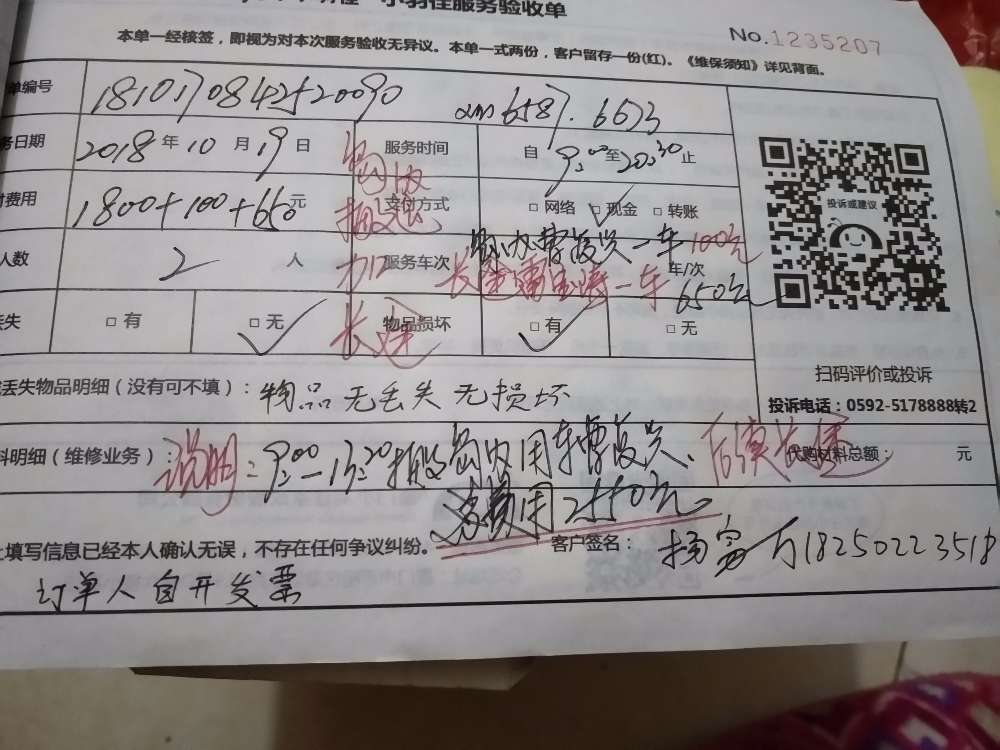 小羽佳服务验收单
No.1235207
本单一经核签，即视为对本次服务验收无异议。本单一式两份，客户留存一份(红)。《维保须知》详见背面。
单编号 1810170842520090 6587.6673
务日期 2018年10月19日 服务时间 自 9:00至20:30止
付费用 1800+100+650元 支付方式 □网络 □现金 □转账
岛内
搬运
人数 2 人 服务车次 年/次
曾莀兴一车100元
一车650元
长途
丢失 □有 □无 物品损坏 □有 □无
投诉或建议
扫码评价或投诉
投诉电话：0592-5178888转2
丢失物品明细（没有可不填）：物品无丢失无损坏
料明细（维修业务）：说明：9:00—13:20 岛内用车 后续长途
代购材料总额： 元
总费用2550元
上填写信息已经本人确认无误，不存在任何争议纠纷。 客户签名： 杨富万18250223518
订单人自开发票